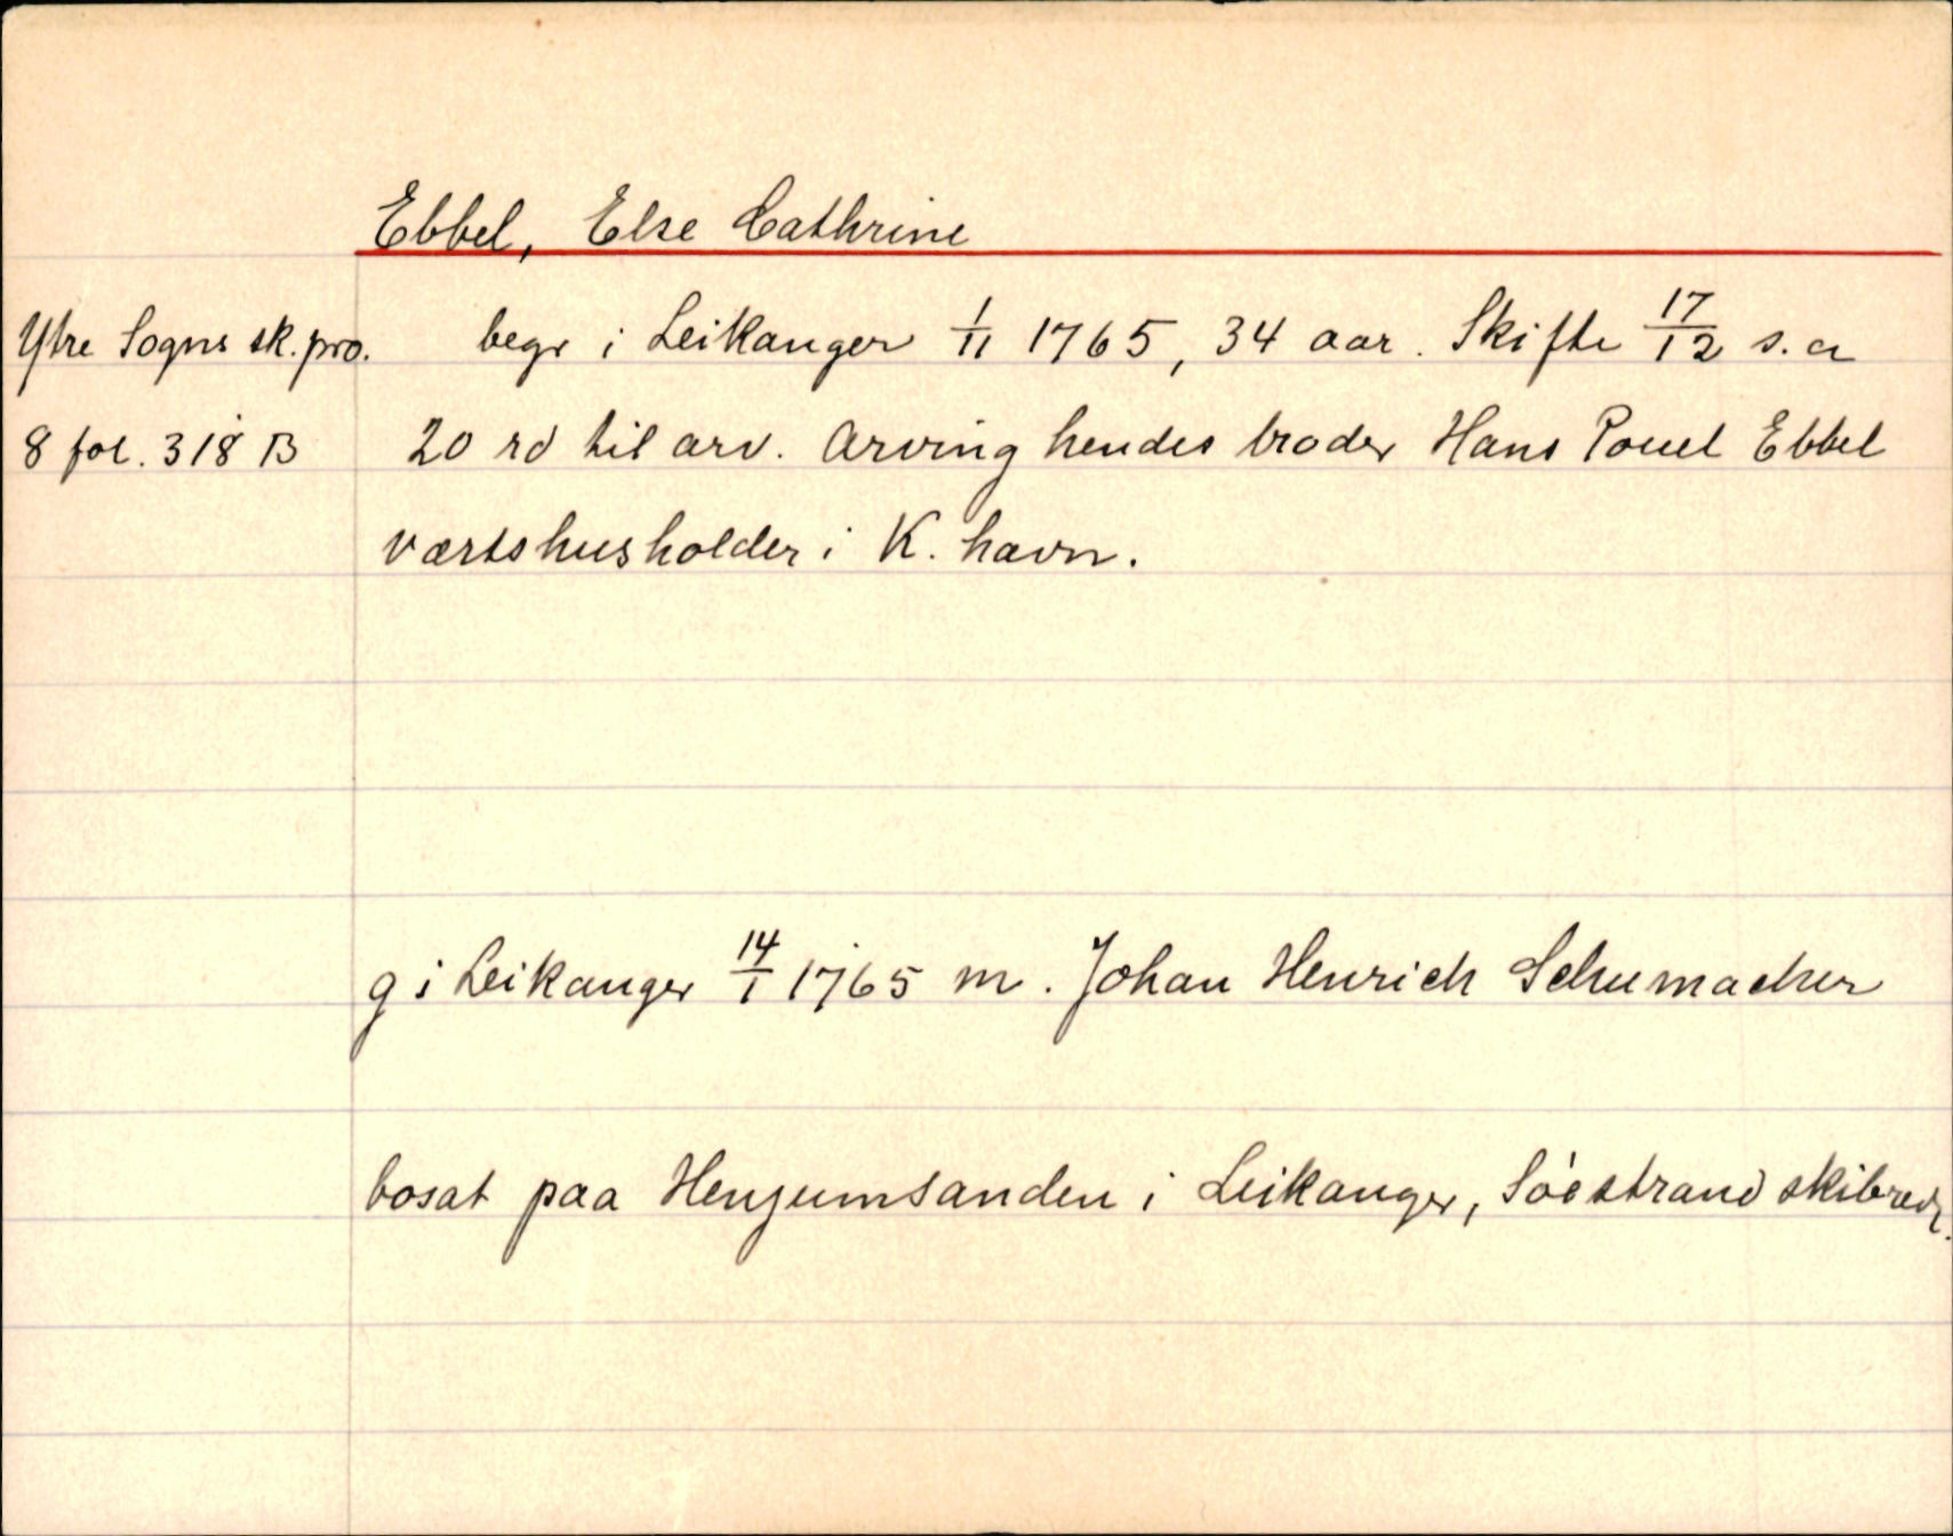 Ebbel, Else Cathrine
Ytre Sogns sk. pro. begr i Leikanger 1/11 1765, 34 aar. Skifte 17/12 s. a
8 fol. 318 B 20 rd til arv. Arving hendes broder Hans Pouel Ebbel
værtshusholder i K. havn.
g i Leikanger 14/1 1765 m. Johan Henrich Schumacher
bosat paa Henjumsanden i Leikanger, Söestrand skibred.